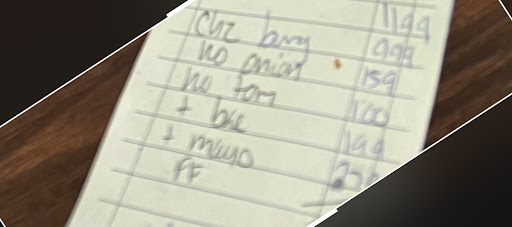 Chz burg 1199
no onion 999
no tom 159
+ bac 100
+ mayo 199
FF